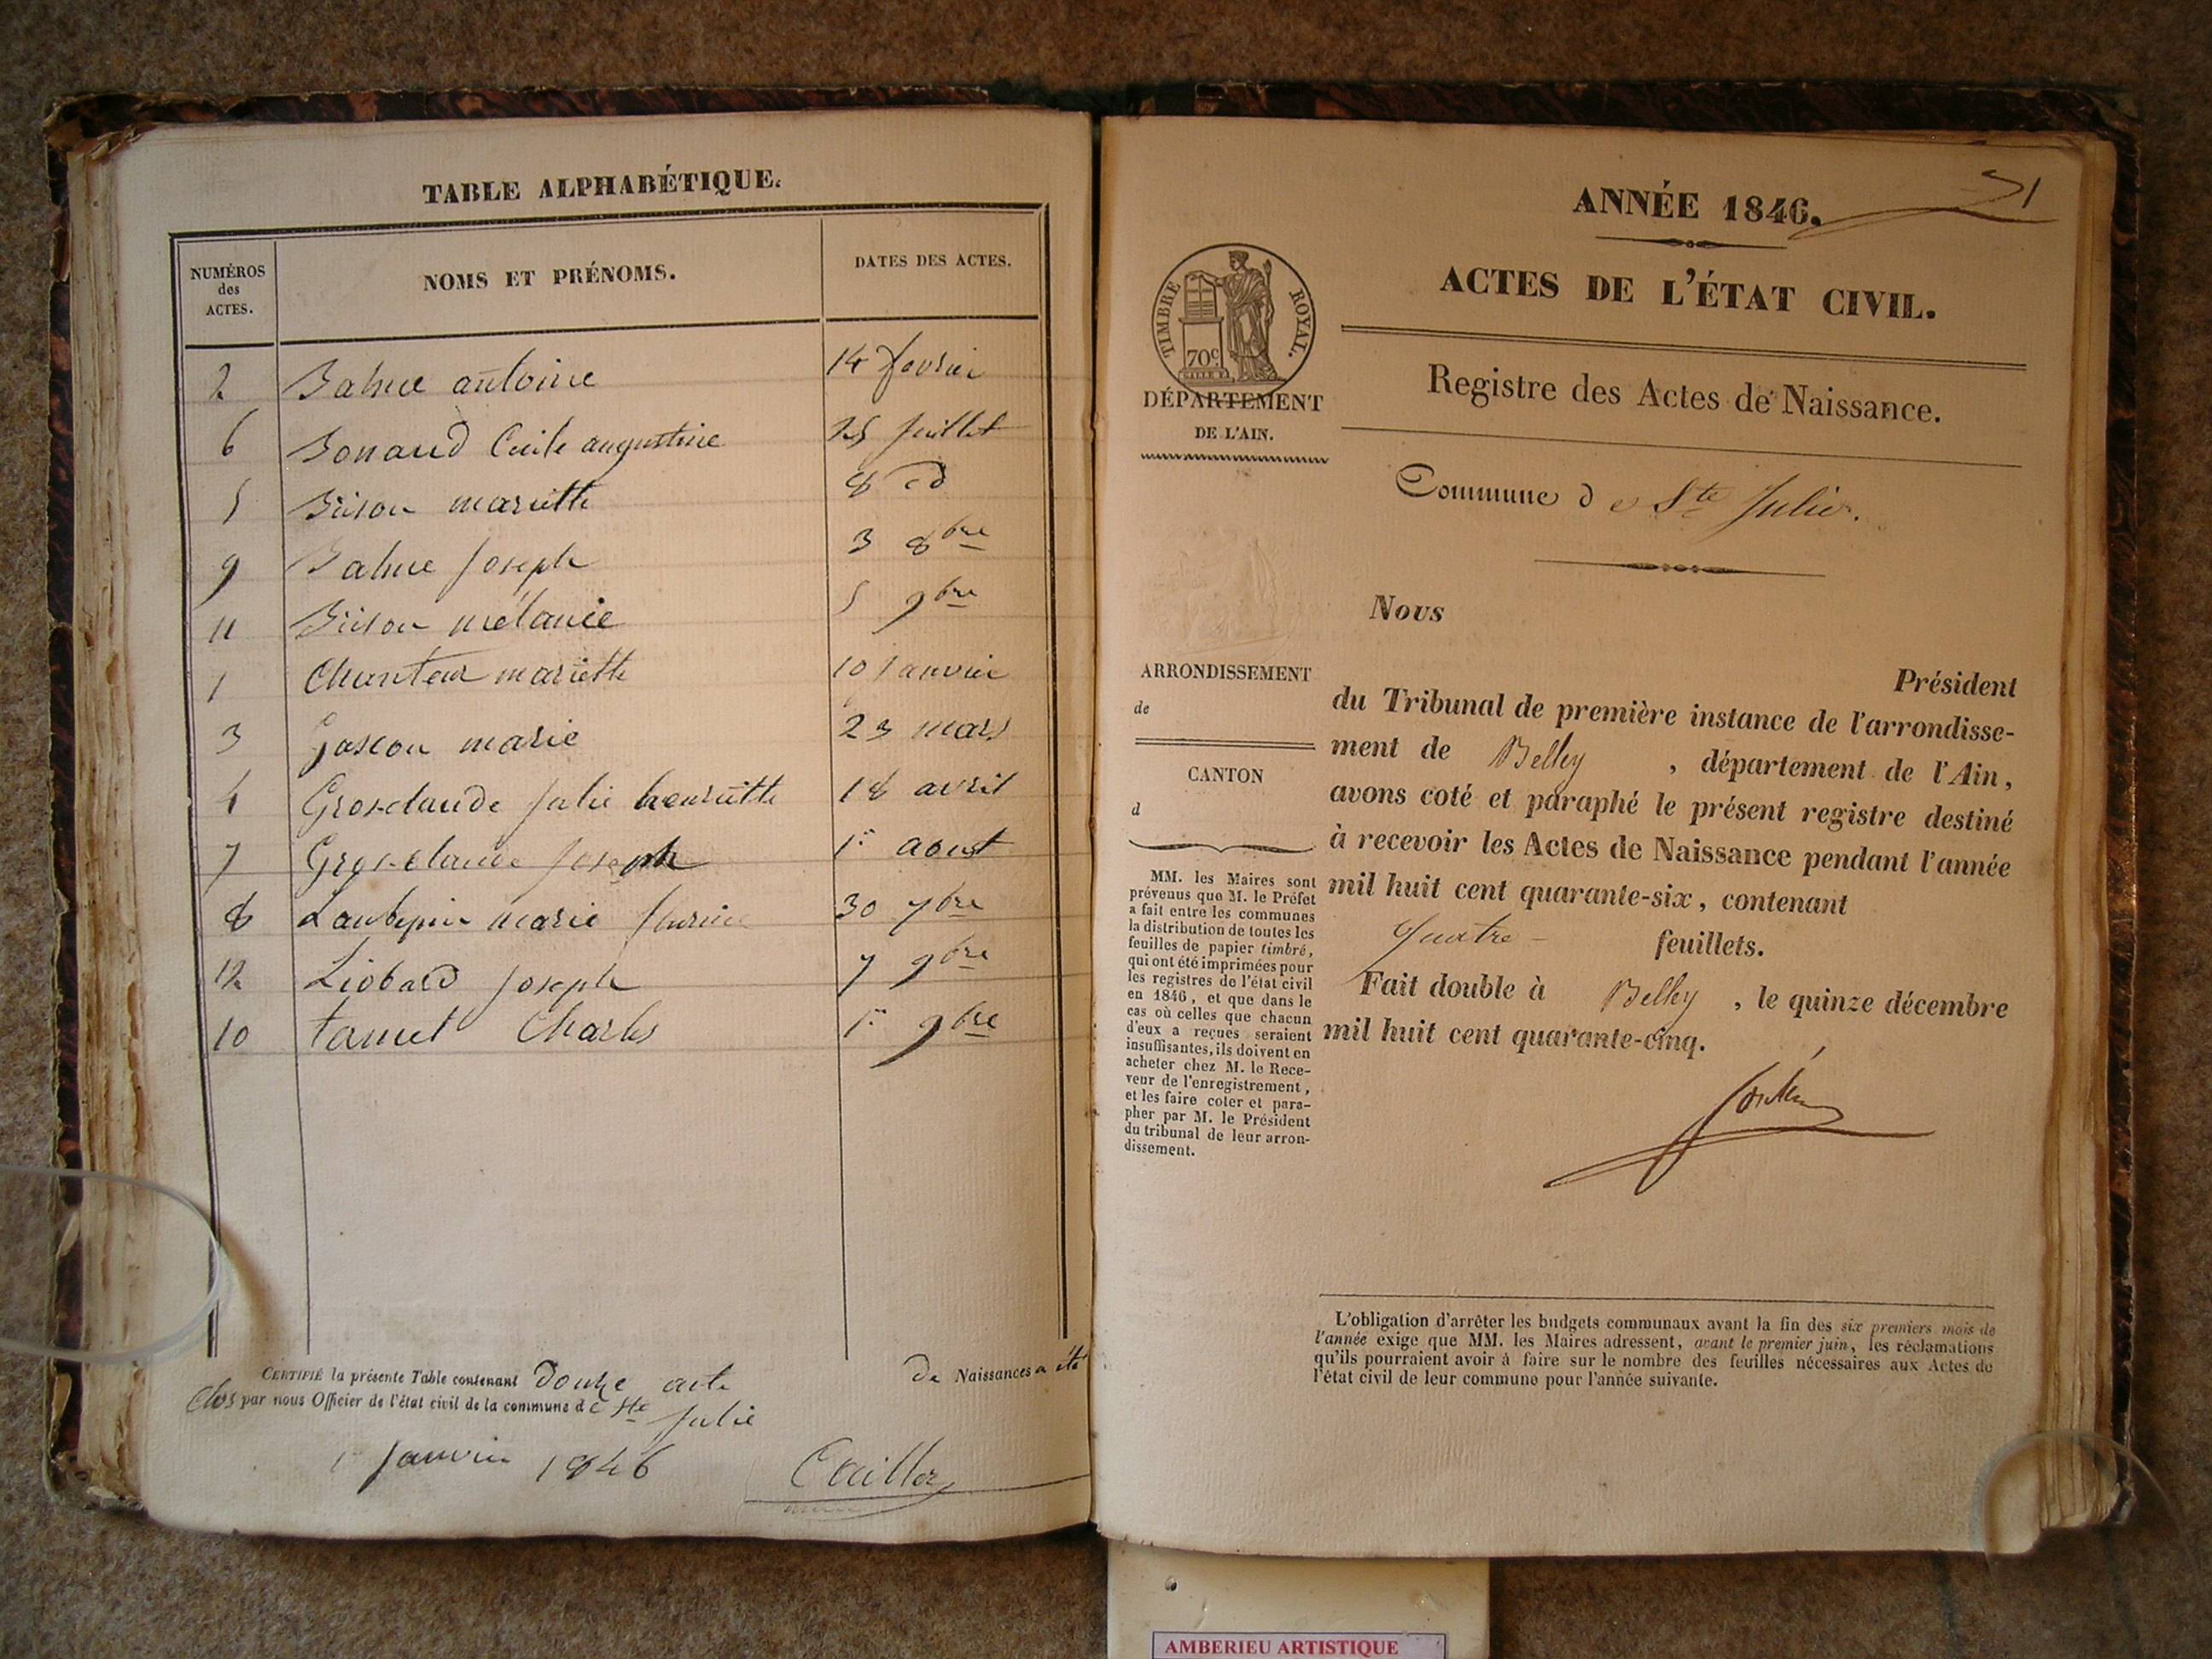 TABLE ALPHABÉTIQUE.
NUMÉROS des ACTES.
NOMS ET PRÉNOMS.
DATES DES ACTES.
2 Balme antoine 14 fevrier
6 Bonaud Cecile augustine 25 juillet
5 Brison mariette 8 id
9 Balme joseph 3 8bre
11 Brison mélanie 5 9bre
1 Chanteur mariette 10 janvier
3 Gascon marie 23 mars
4 Grosclaude julie henriette 18 avril
7 Grosclaude joseph 1er aoust
8 Laubepin marie 30 7bre
12 Liobard joseph 7 9bre
10 tamet Charles 1er 9bre
CERTIFIÉ la présente Table contenant douze acte de Naissances a été
Clos par nous Officier de l'état civil de la commune de Ste julie
1er janvier 1846
ANNÉE 1846.
ACTES DE L'ÉTAT CIVIL.
Registre des Actes de Naissance.
Commune de Ste Julie.
TIMBRE ROYAL.
70c
DÉPARTEMENT
DE L'AIN.
ARRONDISSEMENT
de
CANTON
d
MM. les Maires sont
prévenus que M. le Préfet
a fait entre les communes
la distribution de toutes les
feuilles de papier timbré,
qui ont été imprimées pour
les registres de l'état civil
en 1846, et que dans le
cas où celles que chacun
d'eux a reçues seraient
insuffisantes, ils doivent en
acheter chez M. le Rece-
veur de l'enregistrement,
et les faire coter et para-
pher par M. le Président
du tribunal de leur arron-
dissement.
Nous
Président
du Tribunal de première instance de l'arrondisse-
ment de Belley, département de l'Ain,
avons coté et paraphé le présent registre destiné
à recevoir les Actes de Naissance pendant l'année
mil huit cent quarante-six, contenant
quatre feuillets.
Fait double à Belley, le quinze décembre
mil huit cent quarante-cinq.
L'obligation d'arrêter les budgets communaux avant la fin des six premiers mois de
l'année exige que MM. les Maires adressent, avant le premier juin, les réclamations
qu'ils pourraient avoir à faire sur le nombre des feuilles nécessaires aux Actes de
l'état civil de leur commune pour l'année suivante.
AMBERIEU ARTISTIQUE